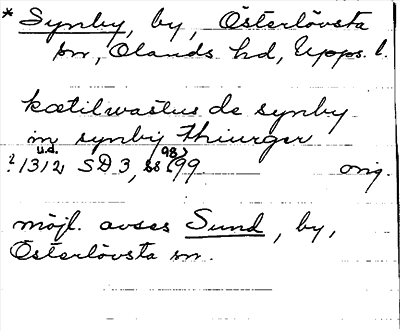 * Synby, by, Österlövsta
sn, Olands hd, Upps. l.
kætilwastus de synby
in synbij thiurger
u.d. 98,
? 1312 SD 3, ss 99 orig.
möjl. avses Sund, by,
Österlövsta sn.